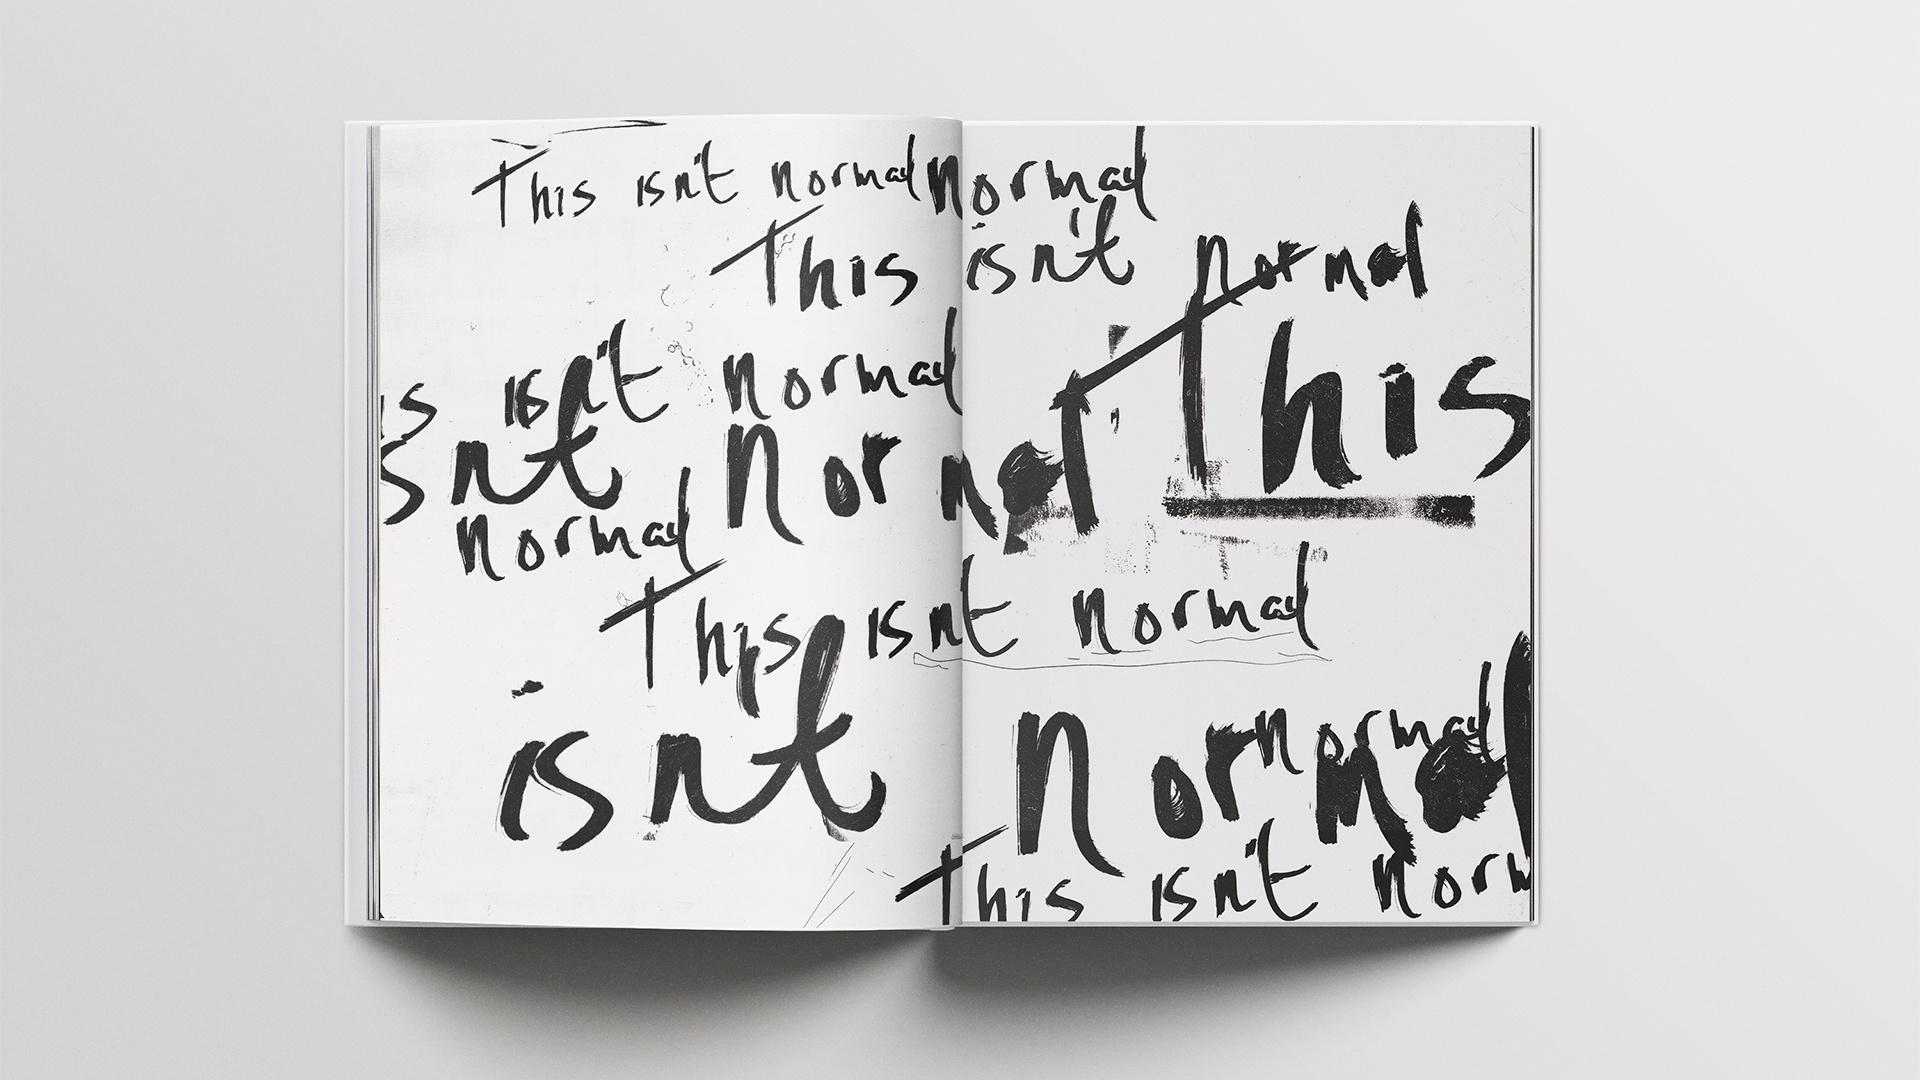 This isn't normal normal
This isn't normal
This
is isn't normal
snt Normal
normal
This isnt normal
isnt Normal
normal
This isn't norm